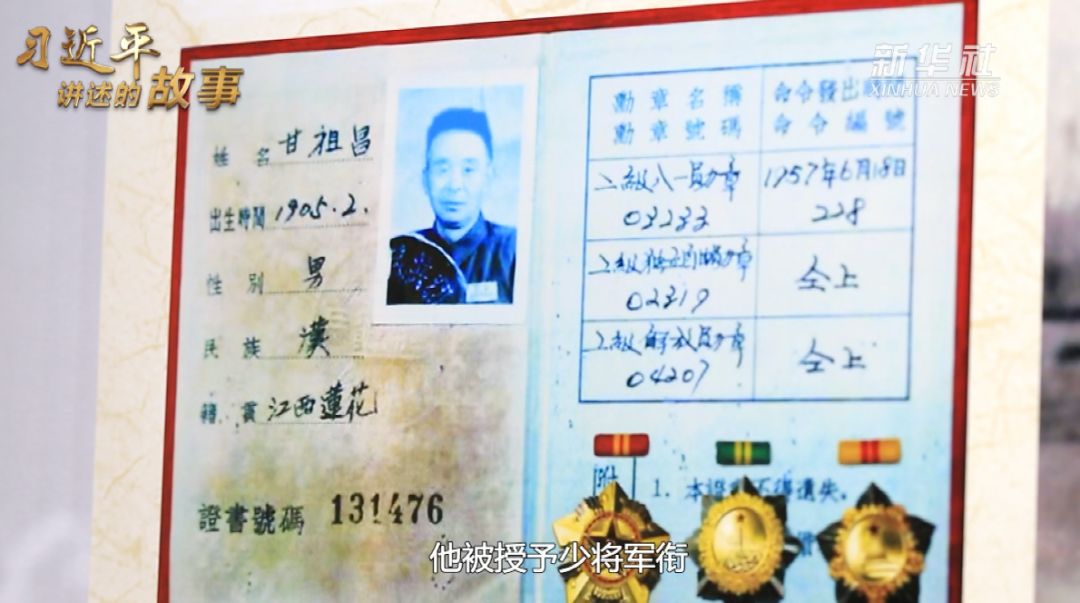 习近平
讲述的故事
新华社
XINHUA NEWS
姓名 甘祖昌
出生時間 1905.2.
性別 男
民族 漢
籍貫 江西蓮花
證書號碼 131476
勳章名稱
勳章號碼
命令發出時間
命令編號
二級八一勋章
03233
1957年6月18日
228
二級独立自由勋章
02319
仝上
二級解放勋章
04207
仝上
附
1. 本證不得遺失。
他被授予少将军衔